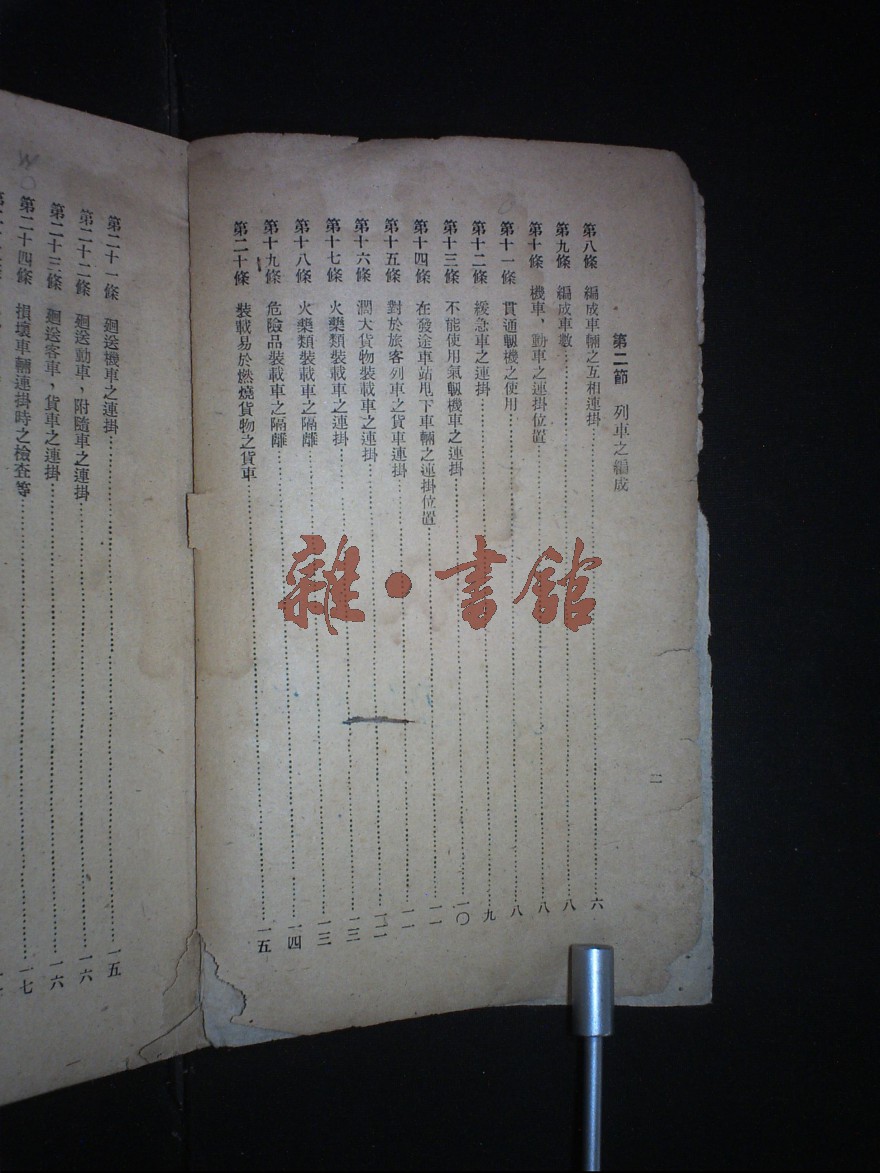 第二節　列車之編成
第八條　編成車輛之互相連掛……六
第九條　編成車數……八
第十條　機車、動車之連掛位置……八
第十一條　貫通軔機之使用……八
第十二條　緩急車之連掛……九
第十三條　不能使用氣軔機車之連掛……一〇
第十四條　在發途車站甩下車輛之連掛位置……一一
第十五條　對於旅客列車之貨車連掛……一一
第十六條　濶大貨物裝載車之連掛……一二
第十七條　火藥類裝載車之連掛……一三
第十八條　火藥類裝載車之隔離……一三
第十九條　危險品裝載車之隔離……一四
第二十條　裝載易於燃燒貨物之貨車……一五
二
第二十一條　廻送機車之連掛……一五
第二十二條　廻送動車、附隨車之連掛……一六
第二十三條　廻送客車、貨車之連掛……一六
第二十四條　損壞車輛連掛時之檢查等……一七
雜·書館